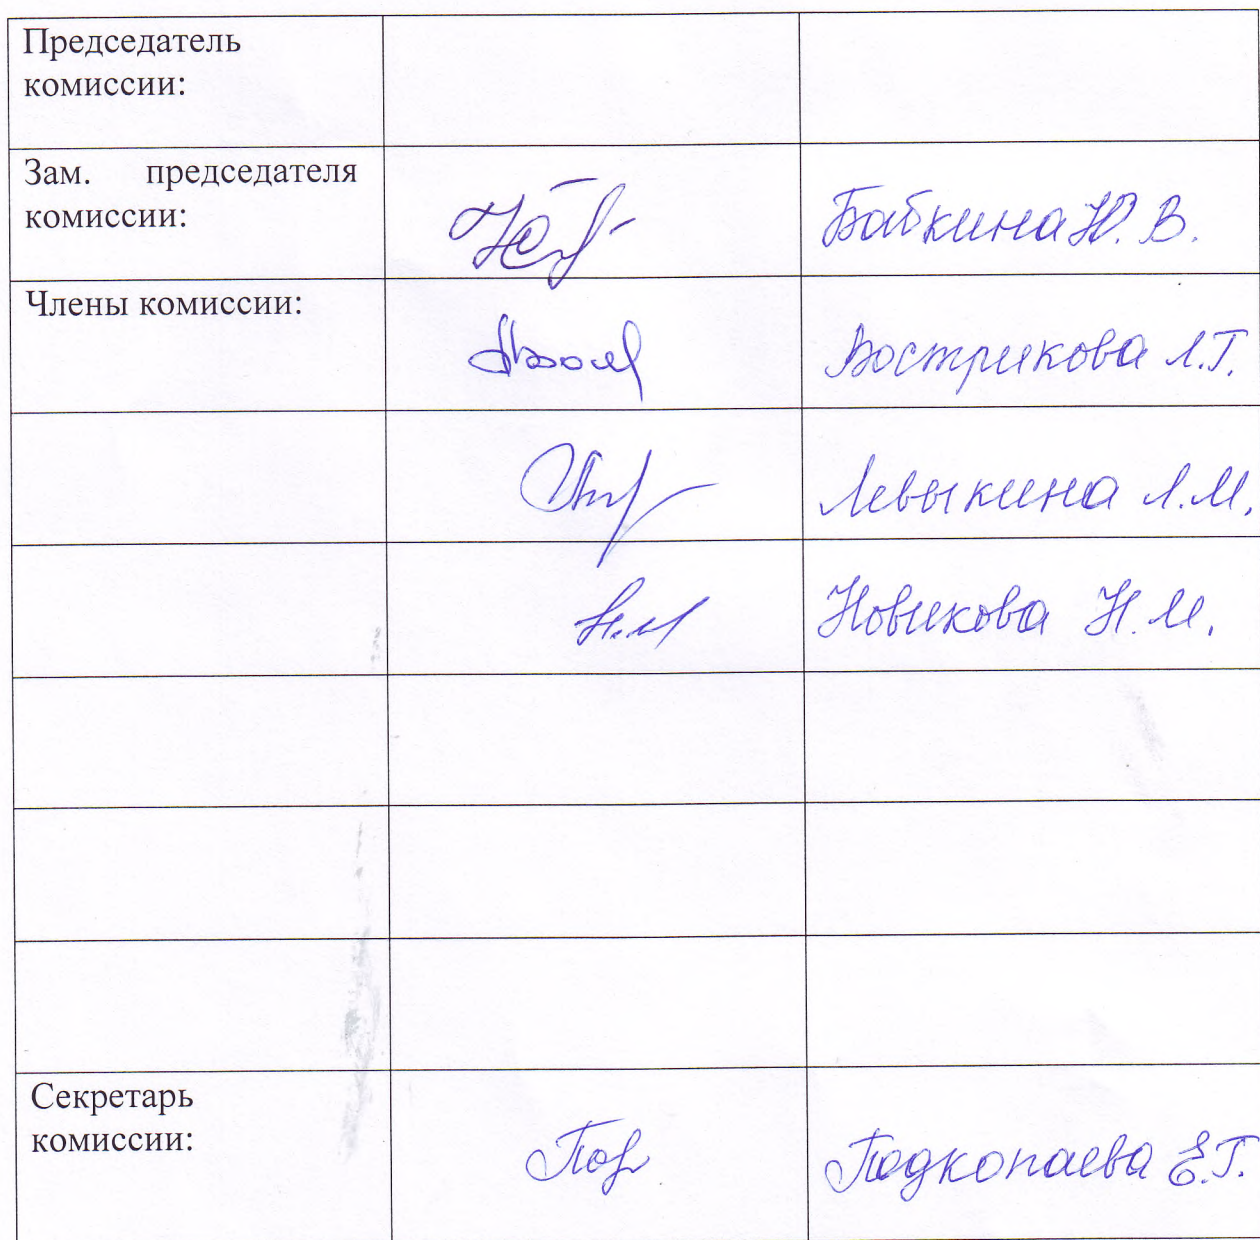 Председатель
комиссии:
Зам. председателя
комиссии:
Байкина Ю. В.
Члены комиссии:
Вострикова Л.Г.
Левыкина Л.М.
Новикова Н.М.
Секретарь
комиссии:
Подкопаева Е.Г.